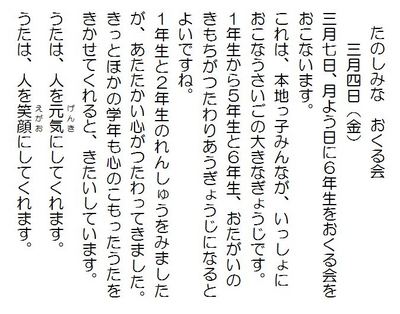 たのしみな　おくる会
三月四日（金）
三月七日、月よう日に６年生をおくる会を
おこないます。
これは、本地っ子みんなが、いっしょに
おこなうさいごの大きなぎょうじです。
１年生から５年生と６年生、おたがいの
きもちがつたわりあうぎょうじになると
よいですね。
１年生と２年生のれんしゅうをみました
が、あたたかい心がつたわってきました。
きっとほかの学年も心のこもったうたを
きかせてくれると、きたいしています。
うたは、人を元気にしてくれます。
げんき
うたは、人を笑顔にしてくれます。
えがお